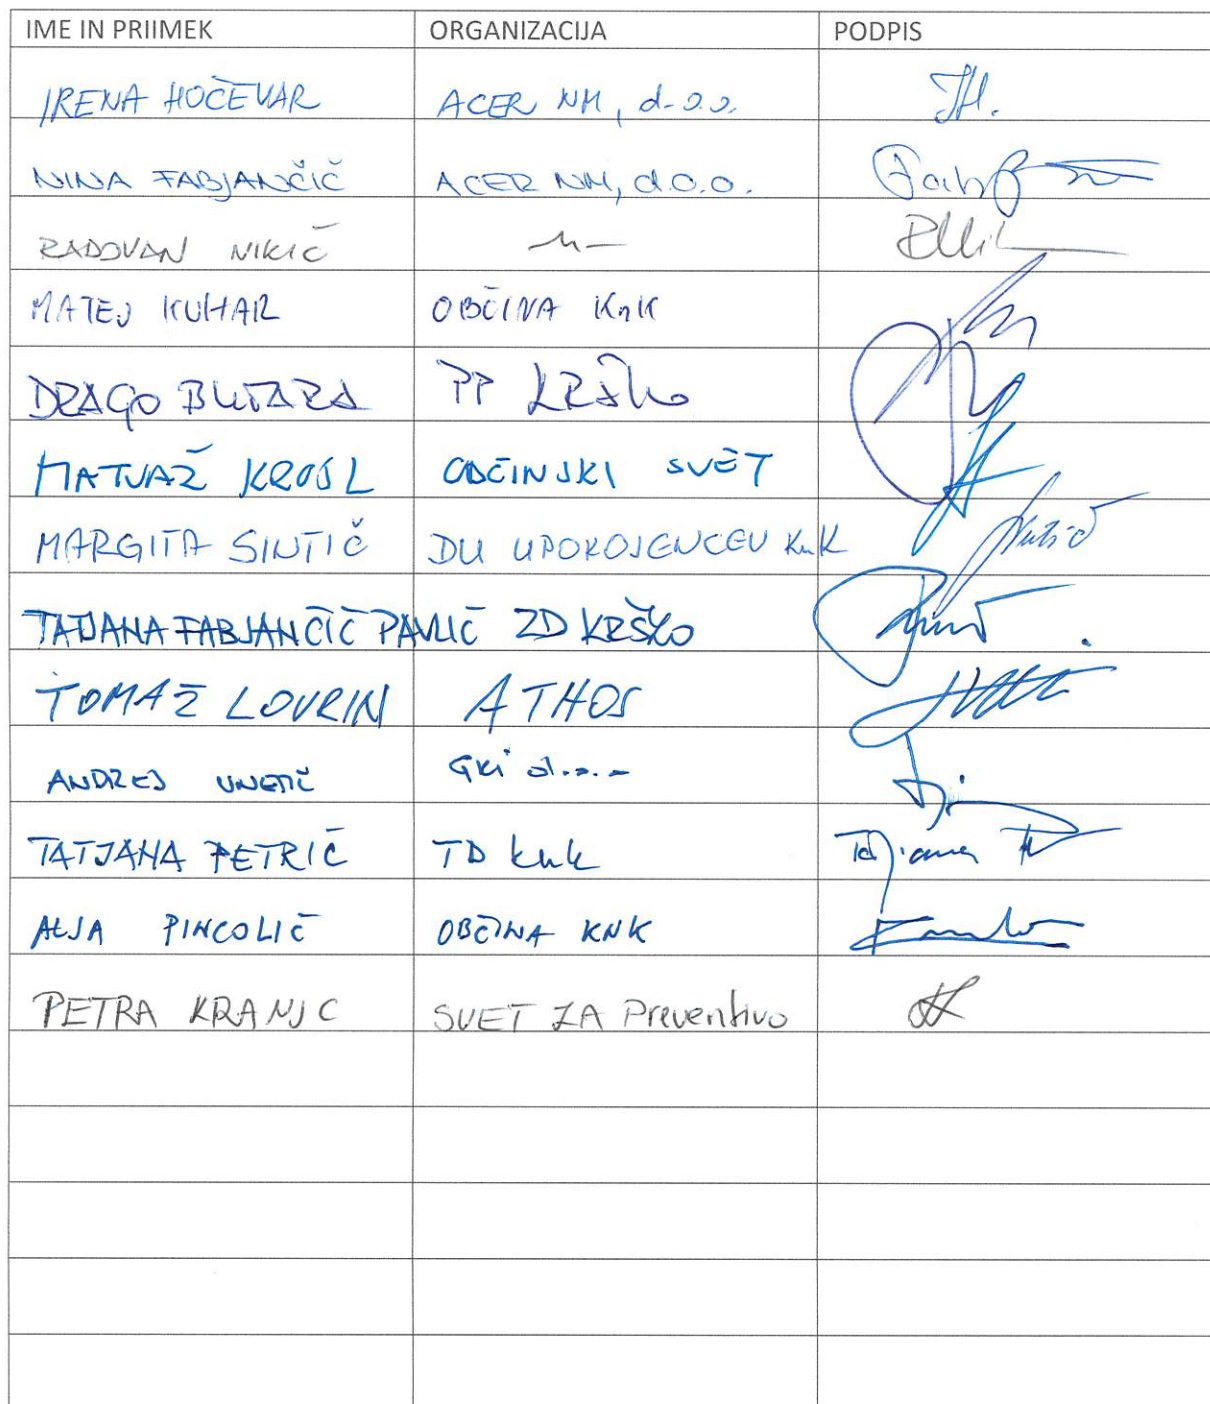 IME IN PRIIMEK ORGANIZACIJA PODPIS
IRENA HOČEVAR ACER NM, d.o.o.
NINA FABJANČIČ ACER NM, d.o.o.
RADOVAN NIKIČ -〃-
MATEJ KUHAR OBČINA KnK
DRAGO PP KRŠKO
MATJAŽ KROŠL OBČINSKI SVET
MARGITA SINTIČ DU UPOKOJENCEV KnK
TATJANA FABJANČIČ PAVLIČ ZD KRŠKO
TOMAŽ LOVRIN ATHOS
ANDREJ UNETIČ GKI d.o.o.
TATJANA PETRIČ TD KnK Tatjana
ALJA PINCOLIČ OBČINA KNK
PETRA KRANJC SVET ZA Preventivo